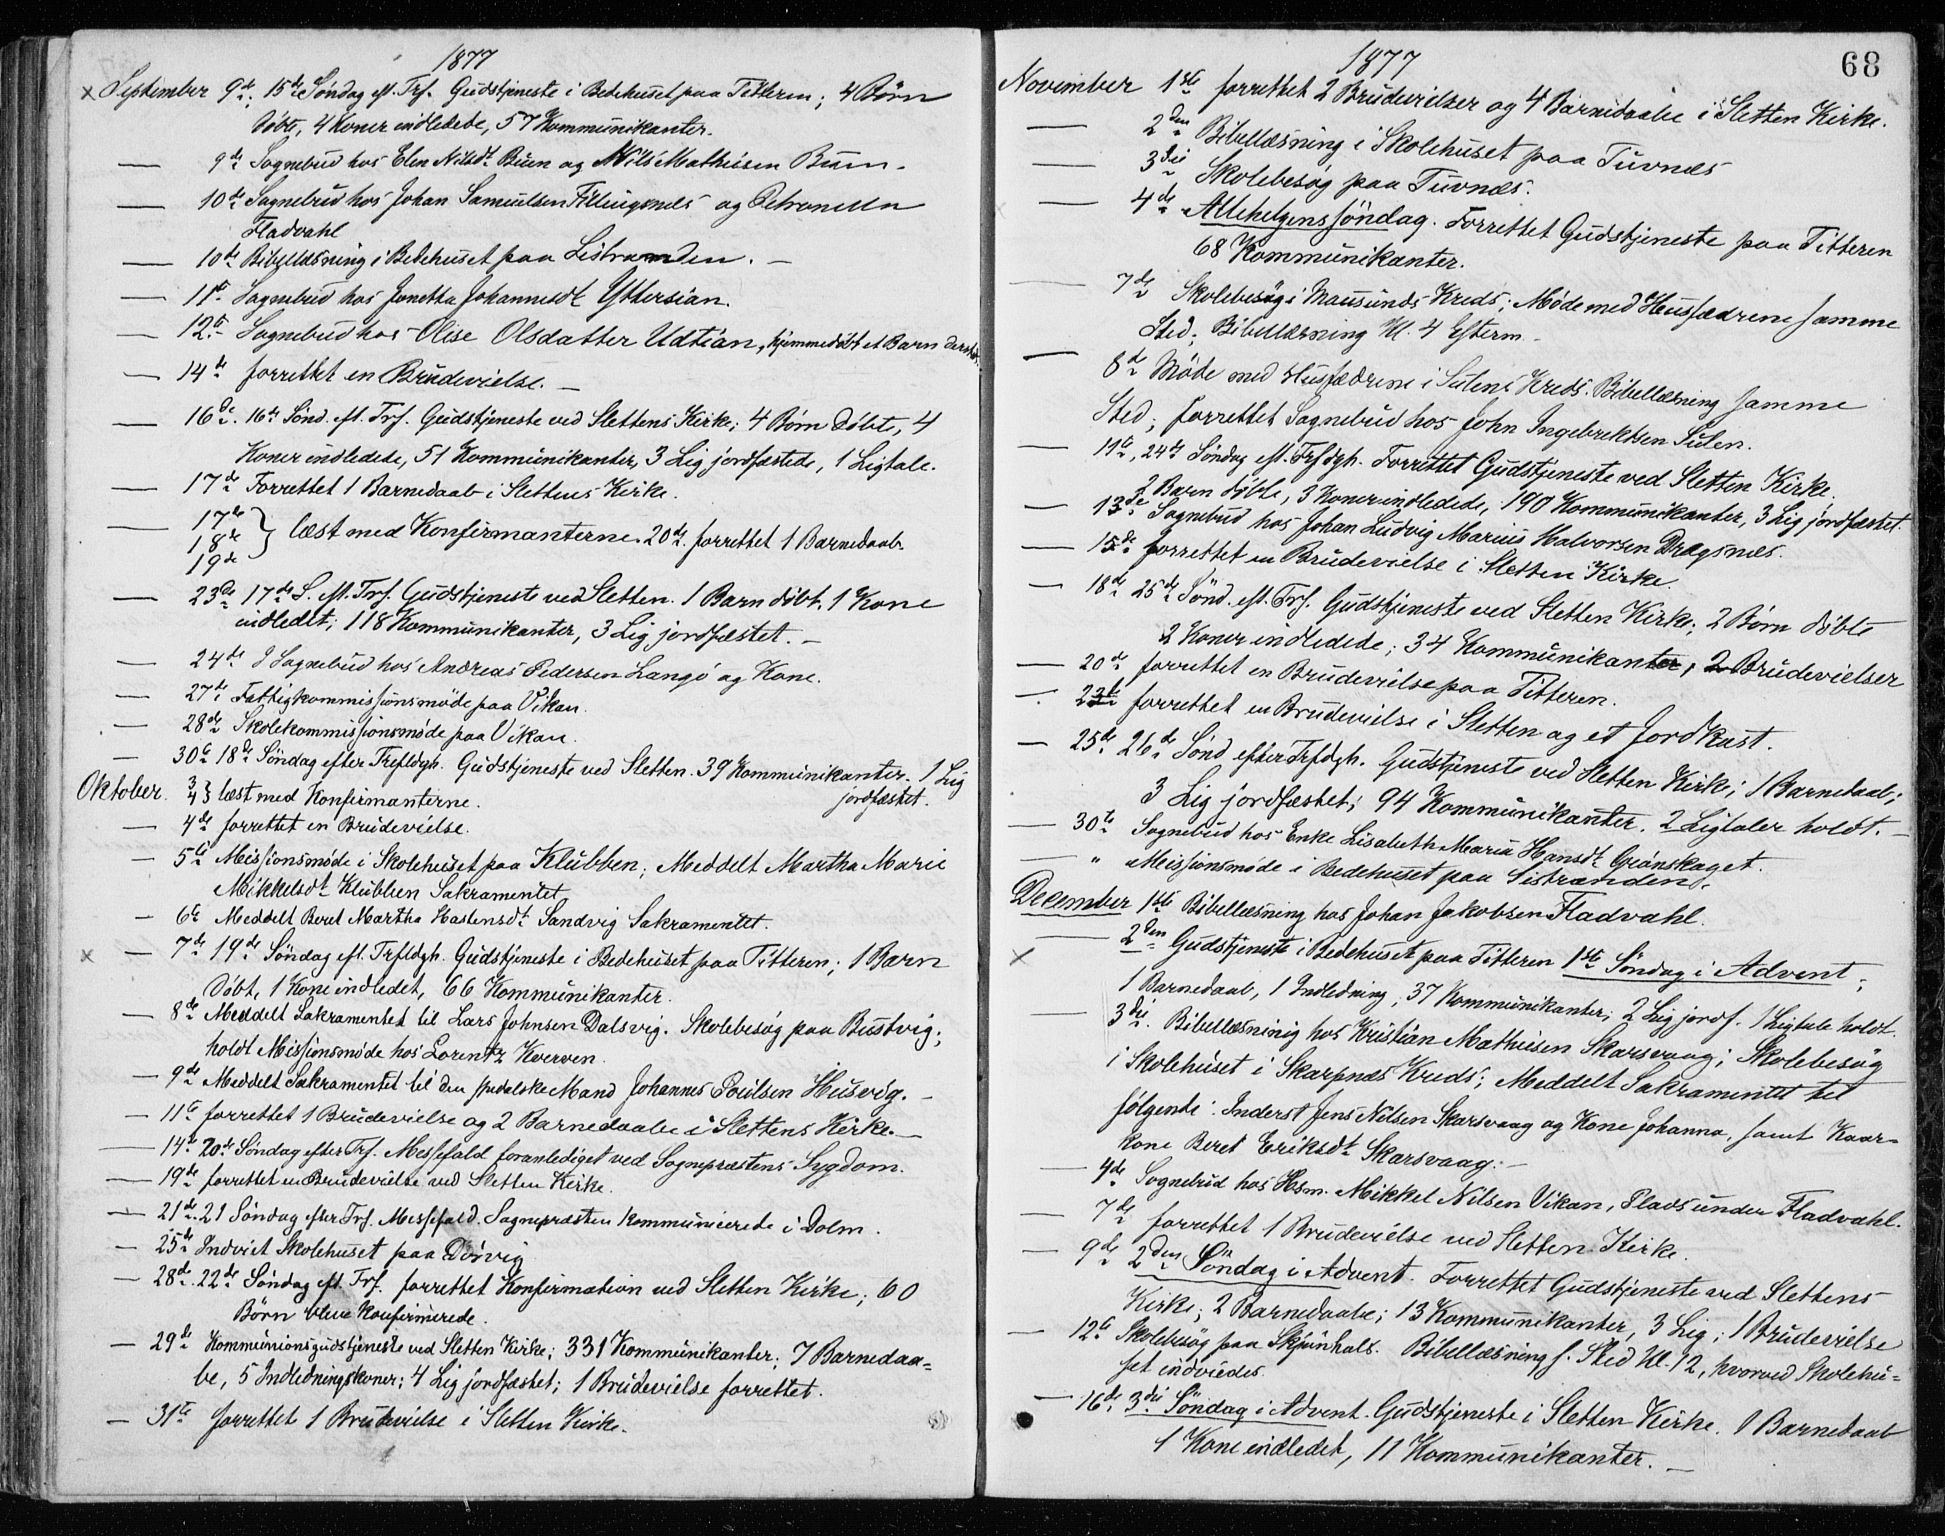 1877
September 9de. 15de Søndag ef. Trf. Gudstjeneste i Bedehuset paa Titteren; 4 Børn
døbte, 4 Koner indledede, 57 Kommunikanter.
— 9de Sognebud hos Elen Nilsdt. Buen og Nils Mathisen Buen.
— 10de Sognebud hos Johan Samuelsen Fillingsnes og Petronella
Fladvahl
— 10de Bibellæsning i Bedehuset paa Sistranden. —
— 11te Sognebud hos Jonetta Johannesdt Yttersian.
— 12te Sognebud hos Olise Olsdatter Udtian, hjemmedøbt et Barn dersteds.
— 14de forrettet en Brudevielse. —
— 16de. 16de Sønd. eft. Trf. Gudstjeneste ved Slettens Kirke; 4 Børn døbte, 4
Koner indledede, 51 Kommunikanter, 3 Lig jordfæstede, 1 Ligtale.
— 17de Forrettet 1 Barnedaab i Slettens Kirke.
— 17de
18de } læst med Konfirmanterne. 20de. forrettet 1 Barnedaab
19de
— 23de 17de S. eft. Trf. Gudstjeneste ved Sletten. 1 Barn døbt, 1 Kone
indledt; 118 Kommunikanter, 3 Lig jordfæstet. —
— 24de I Sognebud hos Andreas Pedersen Langø og Kone.
— 27de Fattigkommissionsmøde paa Vikan.
— 28de Skolekommissionsmøde paa Vikan.
— 30te 18de Søndag efter Trefldgh. Gudstjeneste ved Sletten. 39 Kommunikanter. 1 Lig
jordfæstet.
Oktober. 3 4 } læst med Konfirmanterne.
— 4de forrettet en Brudevielse.
— 5te Missionsmøde i Skolehuset paa Klubben; Meddelt Martha Marie
Mikkelsdt. Klubben Sakramentet
— 6te Meddelt Beret Martha Hastensdt. Sandvig Sakramentet.
— 7de 19de Søndag ef. Trefldgh. Gudstjeneste i Bedehuset paa Titteren; 1 Barn
døbt, 1 Kone indledet, 66 Kommunikanter.
— 8de Meddelt Sakramentet til Lars Johnsen Dalsvig. Skolebesøg paa Bustvig;
holdt Missionsmøde hos Lorentz Kverven.
— 9de Meddelt Sakramentet til den spedalske Mand Johannes Poulsen Husvig. —
— 11te forrettet 1 Brudevielse og 2 Barnedaabe i Slettens Kirke. —
— 14de 20de Søndag efter Trf. Messefald foranlediget ved Sognepræstens Sygdom.
— 19de forrettet en Brudevielse ved Sletten Kirke.
— 21de. 21 Søndag efter Trf. Messefald. Sognepræsten kommunicerede i Dolm.
— 25de Indviet Skolehuset paa Dyrvig
— 28de. 22de Søndag eft. Trf. forrettet Konfirmation ved Sletten Kirke; 60
Børn bleve konfirmerede.
— 29de Kommunionsgudstjeneste ved Sletten Kirke; 331 Kommunikanter; 7 Barnedaa=
be, 5 Indledningskoner; 4 Lig jordfæstet; 1 Brudevielse forrettet.
— 31te forrettet 1 Brudevielse i Sletten Kirke.
68
1877
November 1ste forrettet 2 Brudevielser og 4 Barnedaabe i Sletten Kirke.
— 2den Bibellæsning i Skolehuset paa Tuvnæs
— 3die Skolebesøg paa Tuvnæs.
— 4de Allehelgenssøndag. Forrettet Gudstjeneste paa Titteren
68 Kommunikanter.
7de Skolebesøg i Mausunds Kreds; Møde med Husfædrene samme
Sted; Bibellæsning Kl. 4 Efterm.
— 8de Møde med Husfædrene i Sulens Kreds. Bibellæsning samme
Sted; forrettet Sognebud hos John Ingebrektsen Sulen.
— 11te, 24de Søndag eft. Trfdgh. Forrettet Gudstjeneste ved Sletten Kirke
2 Barn døbte, 3 Koner indledede, 190 Kommunikanter, 3 Lig jordfæstet.
— 13de Sognebud hos Johan Ludvig Marius Halvorsen Dragsnes.
— 15de forrettet en Brudevielse i Sletten Kirke
— 18de 25de Sønd. eft. Trf. Gudstjeneste ved Sletten Kirke; 2 Børn døbte
2 Koner indledede; 34 Kommunikanter, 2 Brudevielser
— 20de forrettet en Brudevielse paa Titteren.
— 23de forrettet en Brudevielse i Sletten og et Jordkast.
— 25de 26de Sønd efter Trfdgh. Gudstjeneste ved Sletten Kirke; 1 Barnedaab;
3 Lig jordfæstet; 94 Kommunikanter. 2 Ligtaler holdt. —
— 30te Sognebud hos Enke Lisabeth Maria Hansdt. Grønskaget.
— " Missionsmøde i Bedehuset paa Sistranden.
December 1ste Bibellæsning hos Johan Jakobsen Fladvahl.
— 2den Gudstjeneste i Bedehuset paa Titteren 1ste Søndag i Advent;
1 Barnedaab, 1 Indledning, 37 Kommunikanter; 2 Lig jordf. 1 Ligtale holdt.
— 3die. Bibellæsning hos Kristian Mathisen Skarsvaag; Skolebesøg
i Skolehuset i Skarpnæs Kreds; Meddelt Sakramentet til
følgende: Inderst Jens Nilsen Skarsvaag og Kone Johanna, samt Kaar=
kone Beret Eriksdt. Skarsvaag. —
— 4de Sognebud hos Hsm. Mikkel Nilsen Vikan, Plads under Fladvahl.
— 7de forrettet 1 Brudevielse ved Sletten Kirke.
— 9de 2den Søndag i Advent. Forrettet Gudstjeneste ved Slettens
Kirke; 2 Barnedaabe; 13 Kommunikanter, 3 Lig; 1 Brudevielse
— 12te Skolebesøg paa Skjønhals. Bibellæsning s. Sted Kl. 12, hvorved Skolehu=
set indviedes.
— 16de 3die Søndag i Advent. Gudstjeneste i Sletten Kirke. 1 Barnedaab
1 Kone indledet, 11 Kommunikanter. —